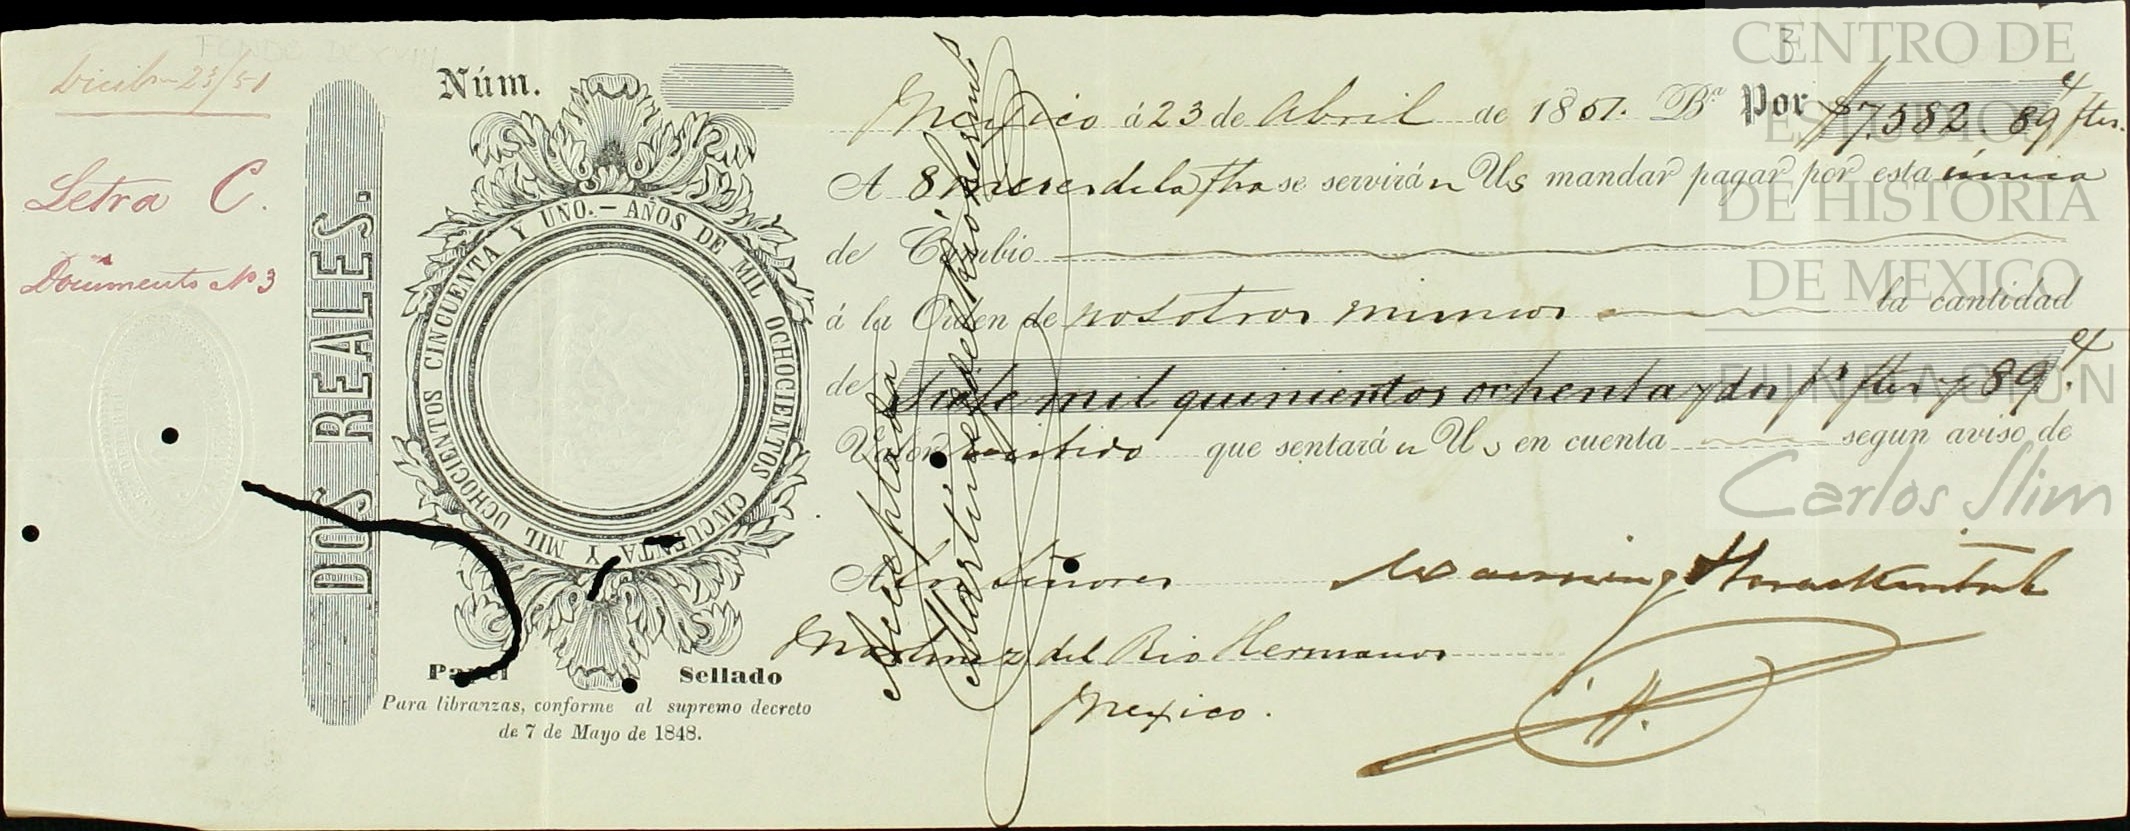 Dicib- 23/51
Letra C.
Documento No 3
DOS REALES.
Núm.
AÑOS DE MIL OCHOCIENTOS CINCUENTA Y MIL OCHOCIENTOS CINCUENTA Y UNO.—
Papel Sellado
Para libranzas, conforme al supremo decreto
de 7 de Mayo de 1848.
3
Mexico á 23 de Abril de 1851. Ba Por $7.582 89 ftes.
A 8 meses de la fha se serviran Us mandar pagar por esta única
de Cambio
á la Orden de nosotros mismos la cantidad
de Siete mil quinientos ochenta y dos ps ftes y 89
Valor recibido que sentarán Us en cuenta segun aviso de
A los Señores
Martinez del Rio Hermanos
Mexico.
Aceptada
Martinez del Rio Hermanos
CENTRO DE
ESTUDIOS
DE HISTORIA
DE MEXICO
FUNDACIÓN
Carlos Slim